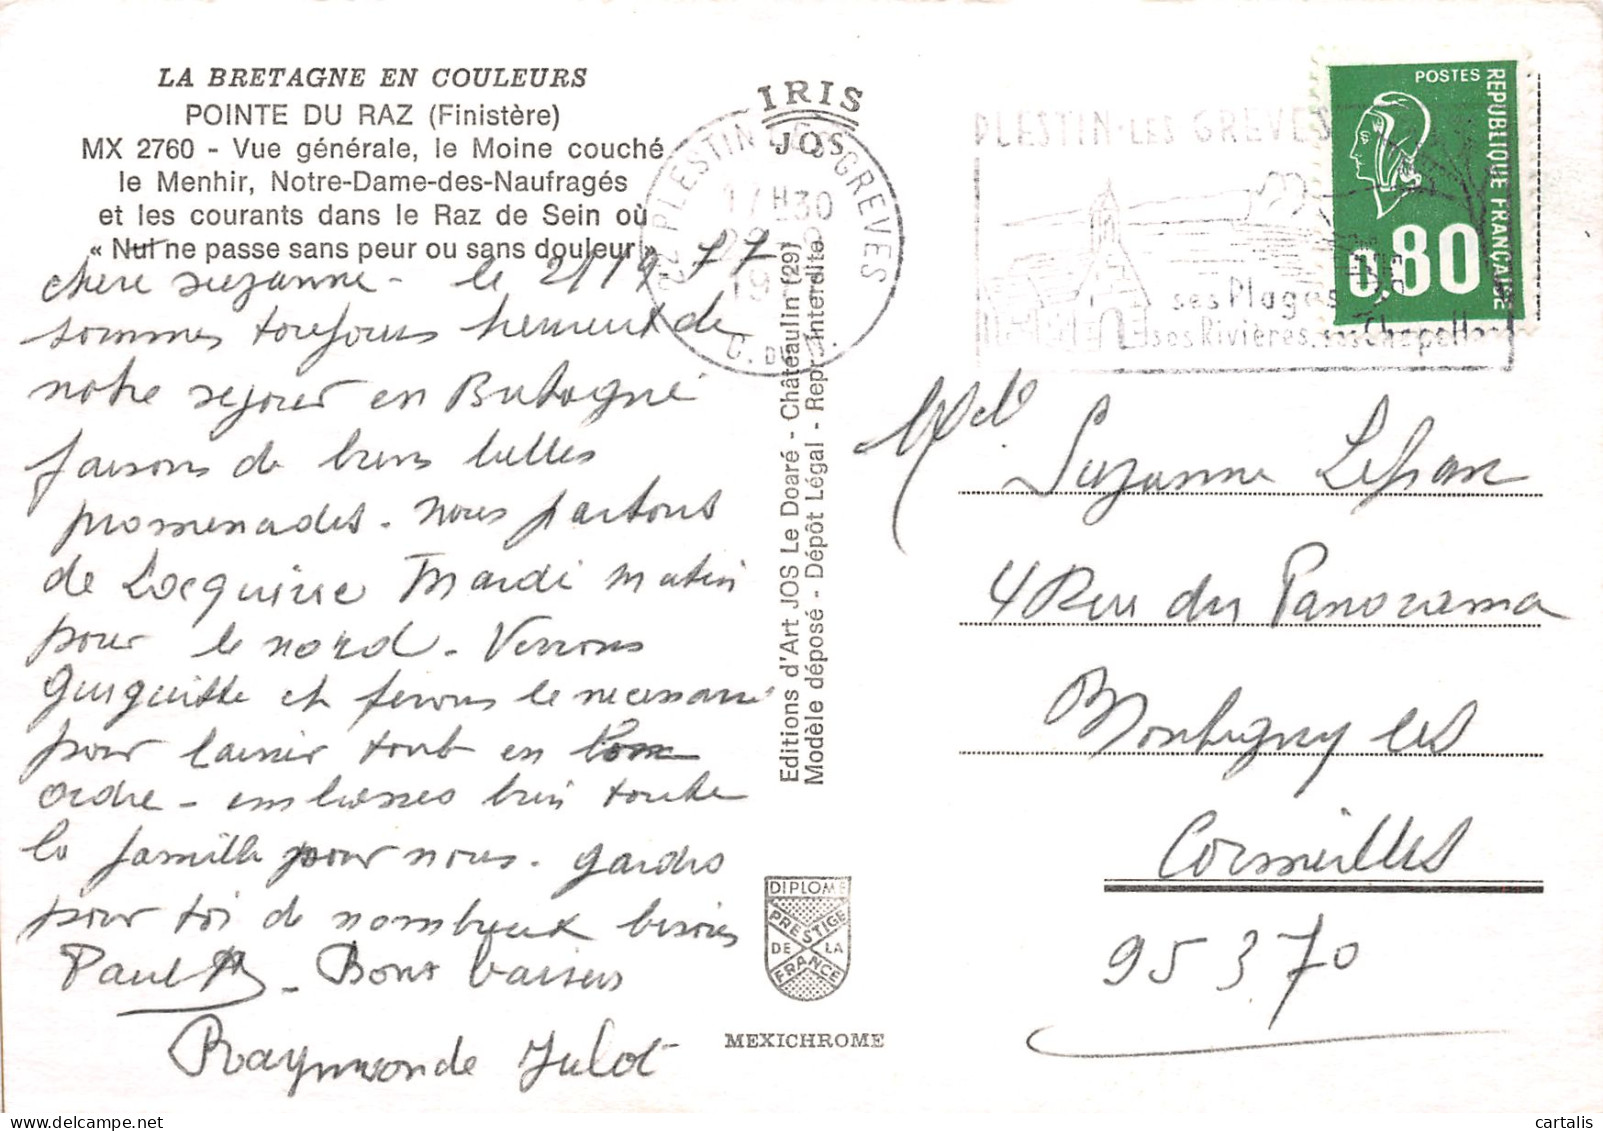 LA BRETAGNE EN COULEURS
POINTE DU RAZ (Finistère)
MX 2760 - Vue générale, le Moine couché
le Menhir, Notre-Dame-des-Naufragés
et les courants dans le Raz de Sein où
« Nul ne passe sans peur ou sans douleur »
chere suzanne - le 77
sommes toujours de
notre sejour en Bretagne
faisons de biens belles
promenades. nous partons
de Locquirec Mardi matin
pour le nord - Verrons
et ferons le necessaire
pour laisser tout en bon
ordre - embrasses bien toute
la famille pour nous. gardes
pour toi de nombreux bisous
Paul - Bons baisers
Raymonde
IRIS
JOS
22 PLESTIN LES GREVES
17H30
Editions d'Art JOS Le Doaré - Châteaulin (29)
Modèle déposé - Dépôt Légal - Repr. Interdite
DIPLOME
PRESTIGE
DE LA
FRANCE
MEXICHROME
PLESTIN-LES GREVES
ses Plages
ses Rivières, ses Chapelles
POSTES
REPUBLIQUE FRANÇAISE
0.80
Suzanne
4 Rue du Panorama
Montigny les
Cormeilles
95370
cartalis